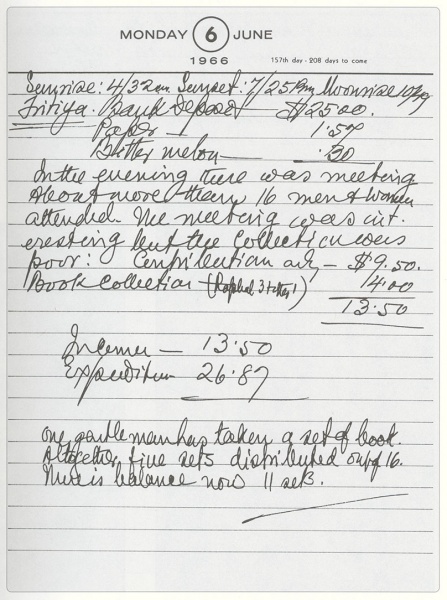 MONDAY 6 JUNE
1966
157th day - 208 days to come
Sunrise: 4/32am Sunset: 7/25Pm Moonrise
Tritiya. Bank deposit — $25.00.
Paper — 1.57
Bitter melon — .30
In the evening there was meeting
about more than 16 men & women
attended. The meeting was int-
eresting but the Collection was
poor: Contribution only — $9.50.
Book Collection — 4.00
13.50
Income — 13.50
Expenditure 26.87
One gentleman has taken a set of book.
Altogether five sets distributed out of 16.
There is balance now 11 sets.